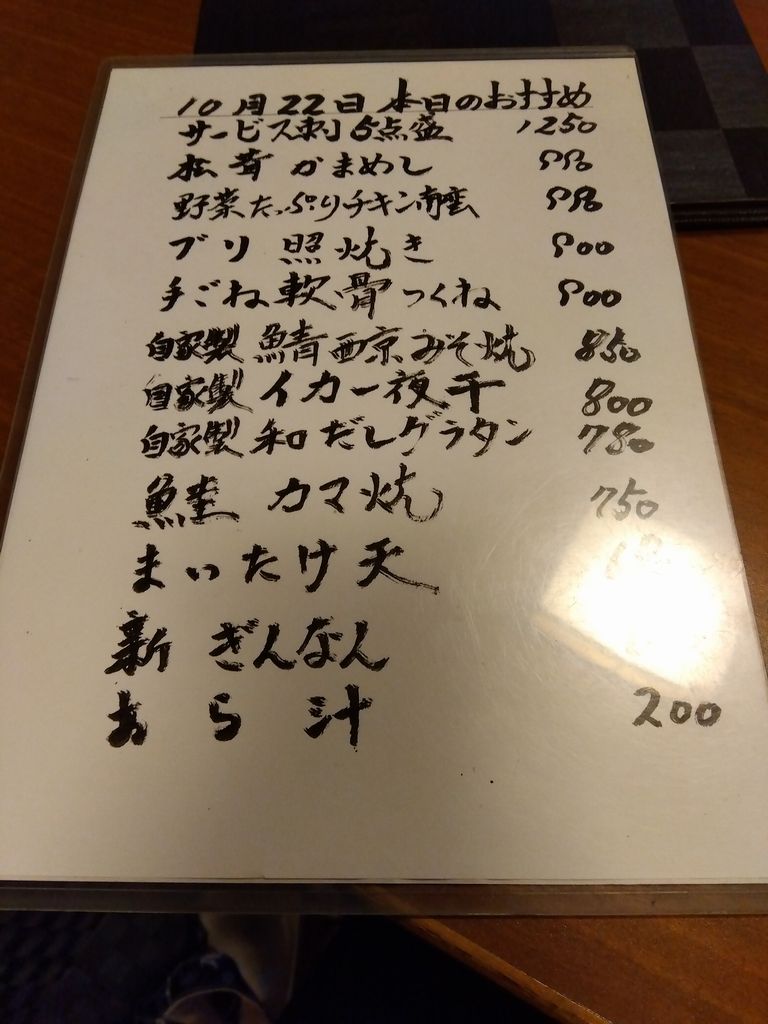 10月22日 本日のおすすめ
サービス刺5点盛 1250
松茸かまめし 980
野菜たっぷりチキン南蛮 980
ブリ 照焼き 900
手ごね軟骨つくね 900
自家製 鯖西京みそ焼 850
自家製 イカ一夜干 800
自家製 和だしグラタン 780
鮭 カマ焼 750
まいたけ天
新 ぎんなん
あら汁 200